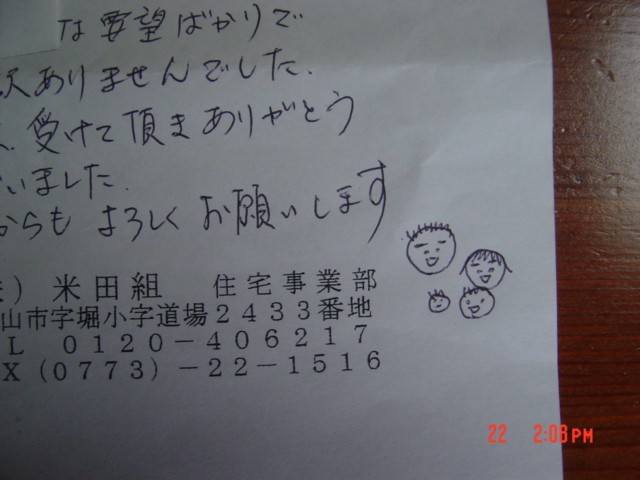 な要望ばかりで
訳ありませんでした.
受けて頂きありがとう
いました.
からも よろしく お願いします
) 米田組 住宅事業部
山市字堀小字道場2433番地
L 0120-406217
X(0773)-22-1516
22 2:06PM